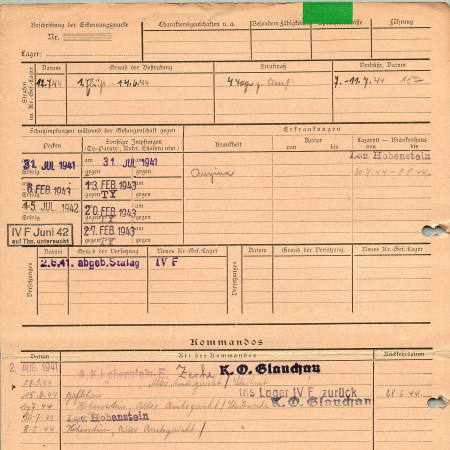 Beschriftung der Erkennungsmarke
Nr.
Lager:
Charaktereigenschaften u. a.
Besondere Fähigkeiten
Führung
Strafen im Kr.-Gef.-Lager
Datum
Grund der Bestrafung
Strafmaß
Verbüßt, Datum
12.7.44
14.6.44
4 Tage g. Arrest
7.-11.7.44
Schutzimpfungen während der Gefangenschaft gegen
Erkrankungen
Pocken
Sonstige Impfungen
(Ty.-Paraty., Ruhr, Cholera usw.)
Krankheit
Revier
von bis
Lazarett — Krankenhaus
von bis
31. JUL 1941
am 31 JUL 1941
Erfolg
gegen
Laz Hohenstein
Angina
30.7.44-8.8.44
6 FEB 1942
13. FEB. 1943
Erfolg
gegen TY
15. JUL 1942
20. FEB 1943
Erfolg
gegen TY
IV F Juni 42
auf Tbc. untersucht
27. FEB 1943
gegen TY
Versetzungen
Datum
Grund der Versetzung
Neues Kr.-Gef.-Lager
Versetzungen
Datum
Grund der Versetzung
Neues Kr.-Gef.-Lager
2.8.41. abgeb. Stalag IV F
Kommandos
Datum
Art des Kommandos
Rückkehrdatum
2. AUG. 1941
A.K. Hohenstein-E. Zeche K. O. Glauchau
Altes Amtsgericht
geflohen
ins Lager IV F zurück
28.6.44
Hohenstein, altes Amtsgericht / Stadtwerke K. O. Glauchau
30.7.44
Laz Hohenstein
8.8.44
Hohenstein, altes Amtsgericht / "